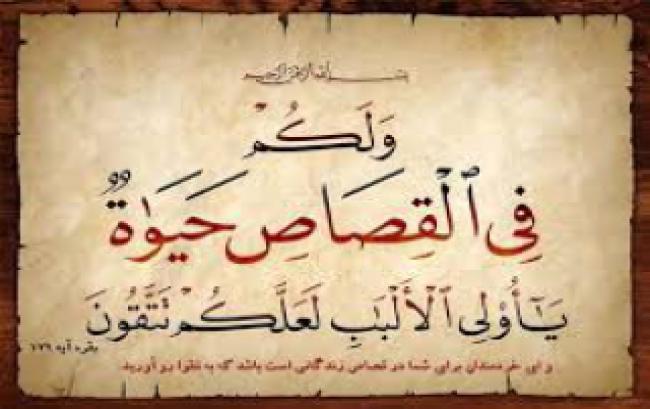 بسم الله الرحمن الرحيم
وَلَكُمْ
فِي ٱلْقِصَاصِ حَيَوٰةٌ
يَـٰٓأُو۟لِى ٱلْأَلْبَـٰبِ لَعَلَّكُمْ تَتَّقُونَ
بقره آیه ۱۷۹
و ای خردمندان برای شما در قصاص زندگانی است باشد که به تقوا رو آورید.